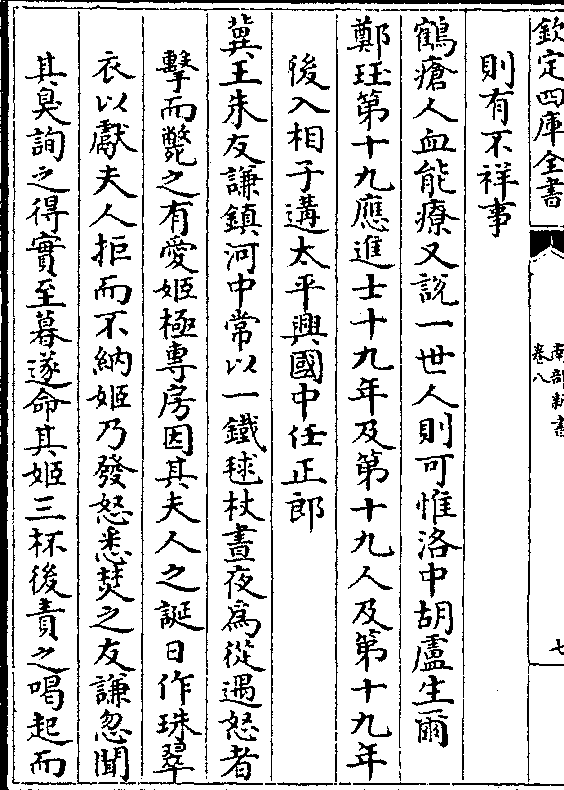 欽定四庫全書
南部新書
卷八
七
則有不祥事
鶴瘡人血能療又說一世人則可惟洛中胡盧生爾
鄭珏第十九應進士十九年及第十九人及第十九年
後入相子遘太平興國中任正郎
冀王朱友謙鎮河中常以一鐵毬杖晝夜為從遇怒者
擊而斃之有愛姬極專房因其夫人之誕日作珠翠
衣以獻夫人拒而不納姬乃發怒悉焚之友謙忽聞
其臭詢之得實至暮遂命其姬三杯後責之喝起而